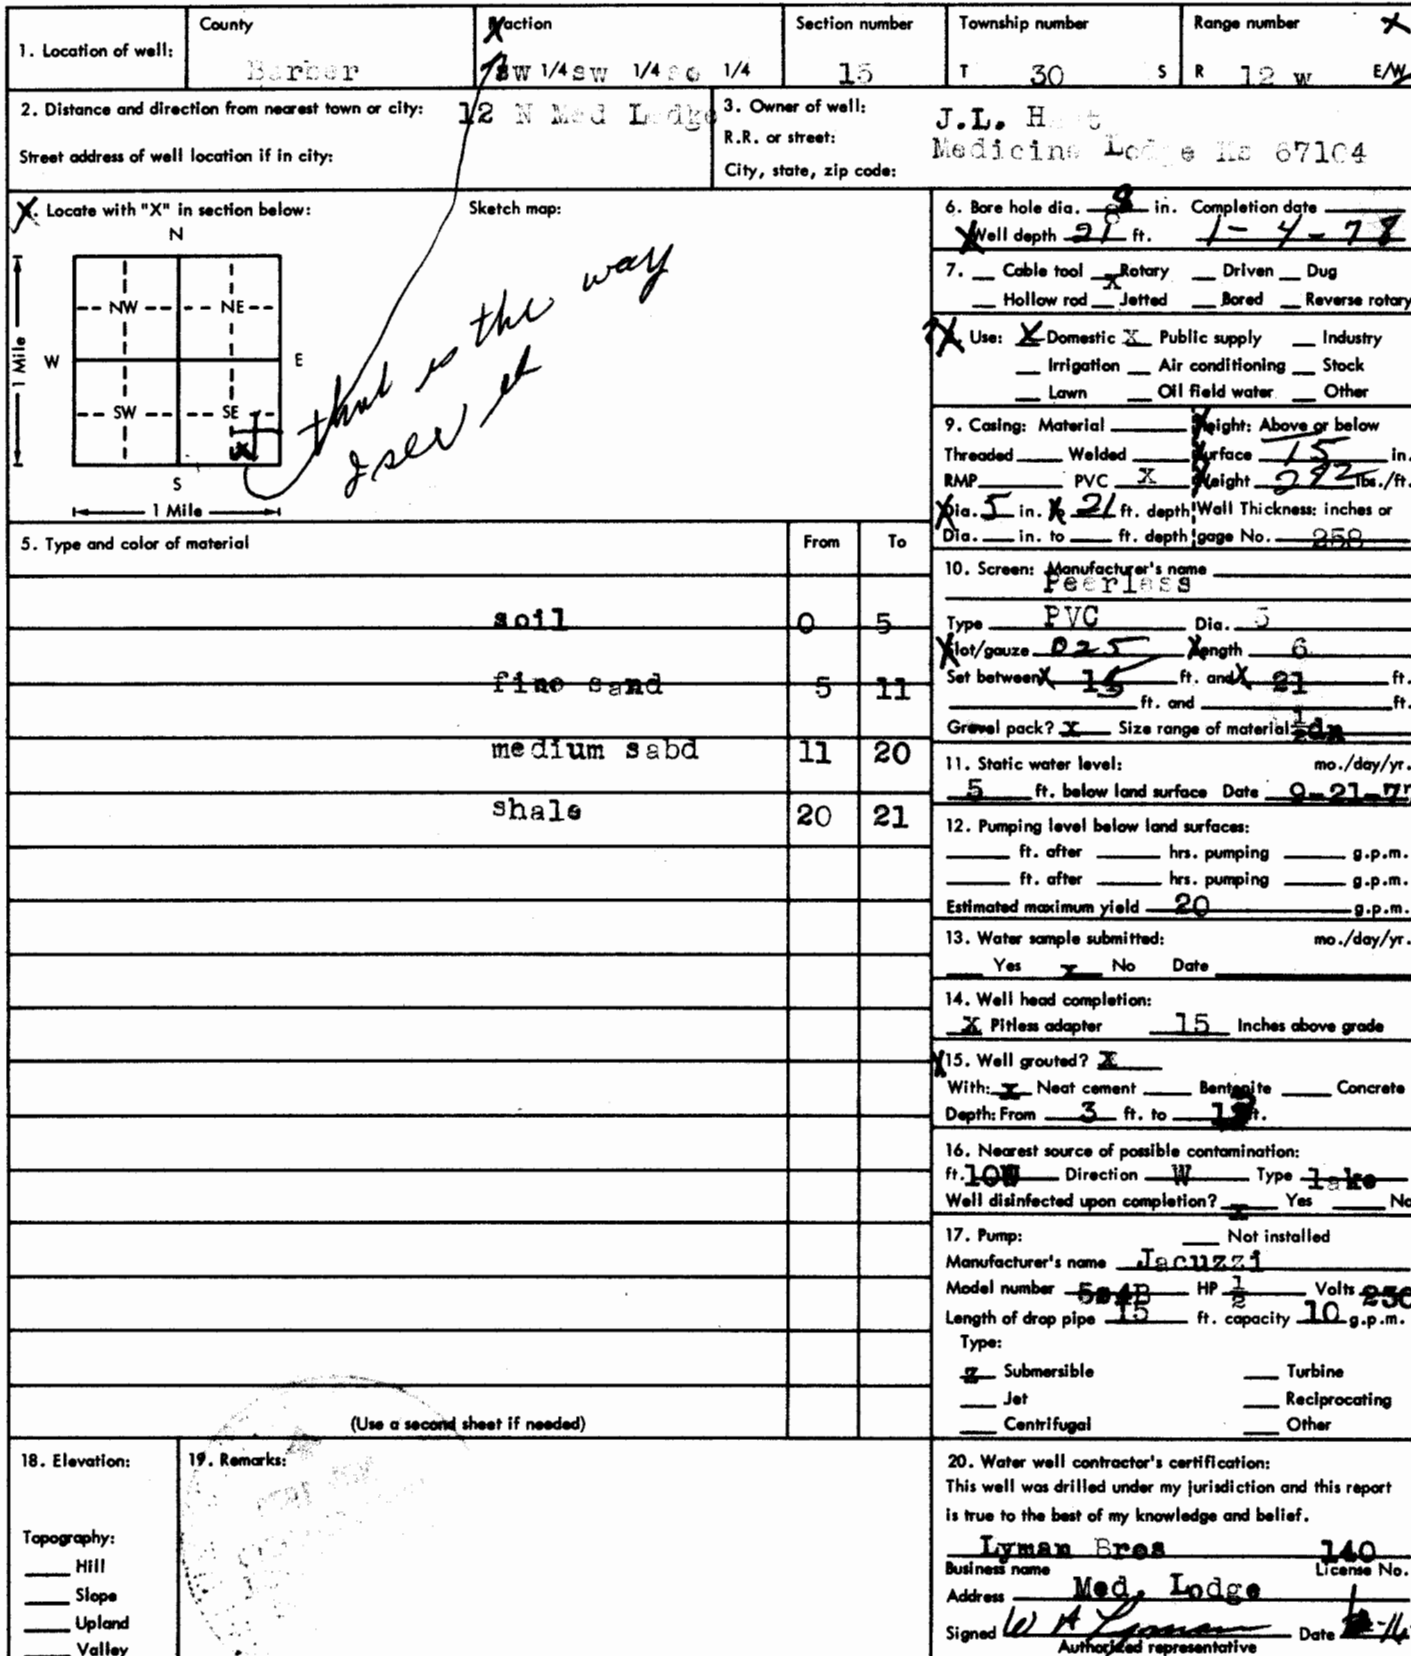 County
Fraction
Section number
Township number
Range number
1. Location of well:
Barber
SW 1/4 SW 1/4 SE 1/4
15
T 30 S
R 12 W E/W
2. Distance and direction from nearest town or city: 12 N Med Lodge
Street address of well location if in city:
3. Owner of well: J.L.
R.R. or street:
City, state, zip code: Medicine Lodge Ks 67104
Locate with "X" in section below:
Sketch map:
N
NW NE
W E
SW SE
S
1 Mile
1 Mile
that is the way
I see it
5. Type and color of material From To
soil 0 5
fine sand 5 11
medium sabd 11 20
shale 20 21
(Use a second sheet if needed)
6. Bore hole dia. 8 in. Completion date
Well depth 21 ft. 1-4-78
7. Cable tool X Rotary Driven Dug
Hollow rod Jetted Bored Reverse rotary
Use: X Domestic X Public supply Industry
Irrigation Air conditioning Stock
Lawn Oil field water Other
9. Casing: Material Height: Above or below
Threaded Welded Surface 15 in.
RMP PVC X Weight 292 lbs./ft.
Dia. 5 in. to 21 ft. depth Wall Thickness: inches or
Dia. in. to ft. depth gage No. 258
10. Screen: Manufacturer's name
Peerless
Type PVC Dia. 5
Slot/gauze 025 Length 6
Set between 15 ft. and 21 ft.
ft. and ft.
Gravel pack? x Size range of material 1/2 dn
11. Static water level: mo./day/yr.
5 ft. below land surface Date 9-21-77
12. Pumping level below land surfaces:
ft. after hrs. pumping g.p.m.
ft. after hrs. pumping g.p.m.
Estimated maximum yield 20 g.p.m.
13. Water sample submitted: mo./day/yr.
Yes x No Date
14. Well head completion:
X Pitless adapter 15 Inches above grade
15. Well grouted? X
With: x Neat cement Bentonite Concrete
Depth: From 3 ft. to ft.
16. Nearest source of possible contamination:
ft. Direction W Type lake
Well disinfected upon completion? x Yes No
17. Pump: Not installed
Manufacturer's name Jacuzzi
Model number HP 1/2 Volts 230
Length of drop pipe 15 ft. capacity 10 g.p.m.
Type:
Submersible Turbine
Jet Reciprocating
Centrifugal Other
18. Elevation:
Topography:
Hill
Slope
Upland
Valley
19. Remarks:
20. Water well contractor's certification:
This well was drilled under my jurisdiction and this report
is true to the best of my knowledge and belief.
Lyman Bros 140
Business name License No.
Address Med. Lodge
Signed W A Lyman Date
Authorized representative